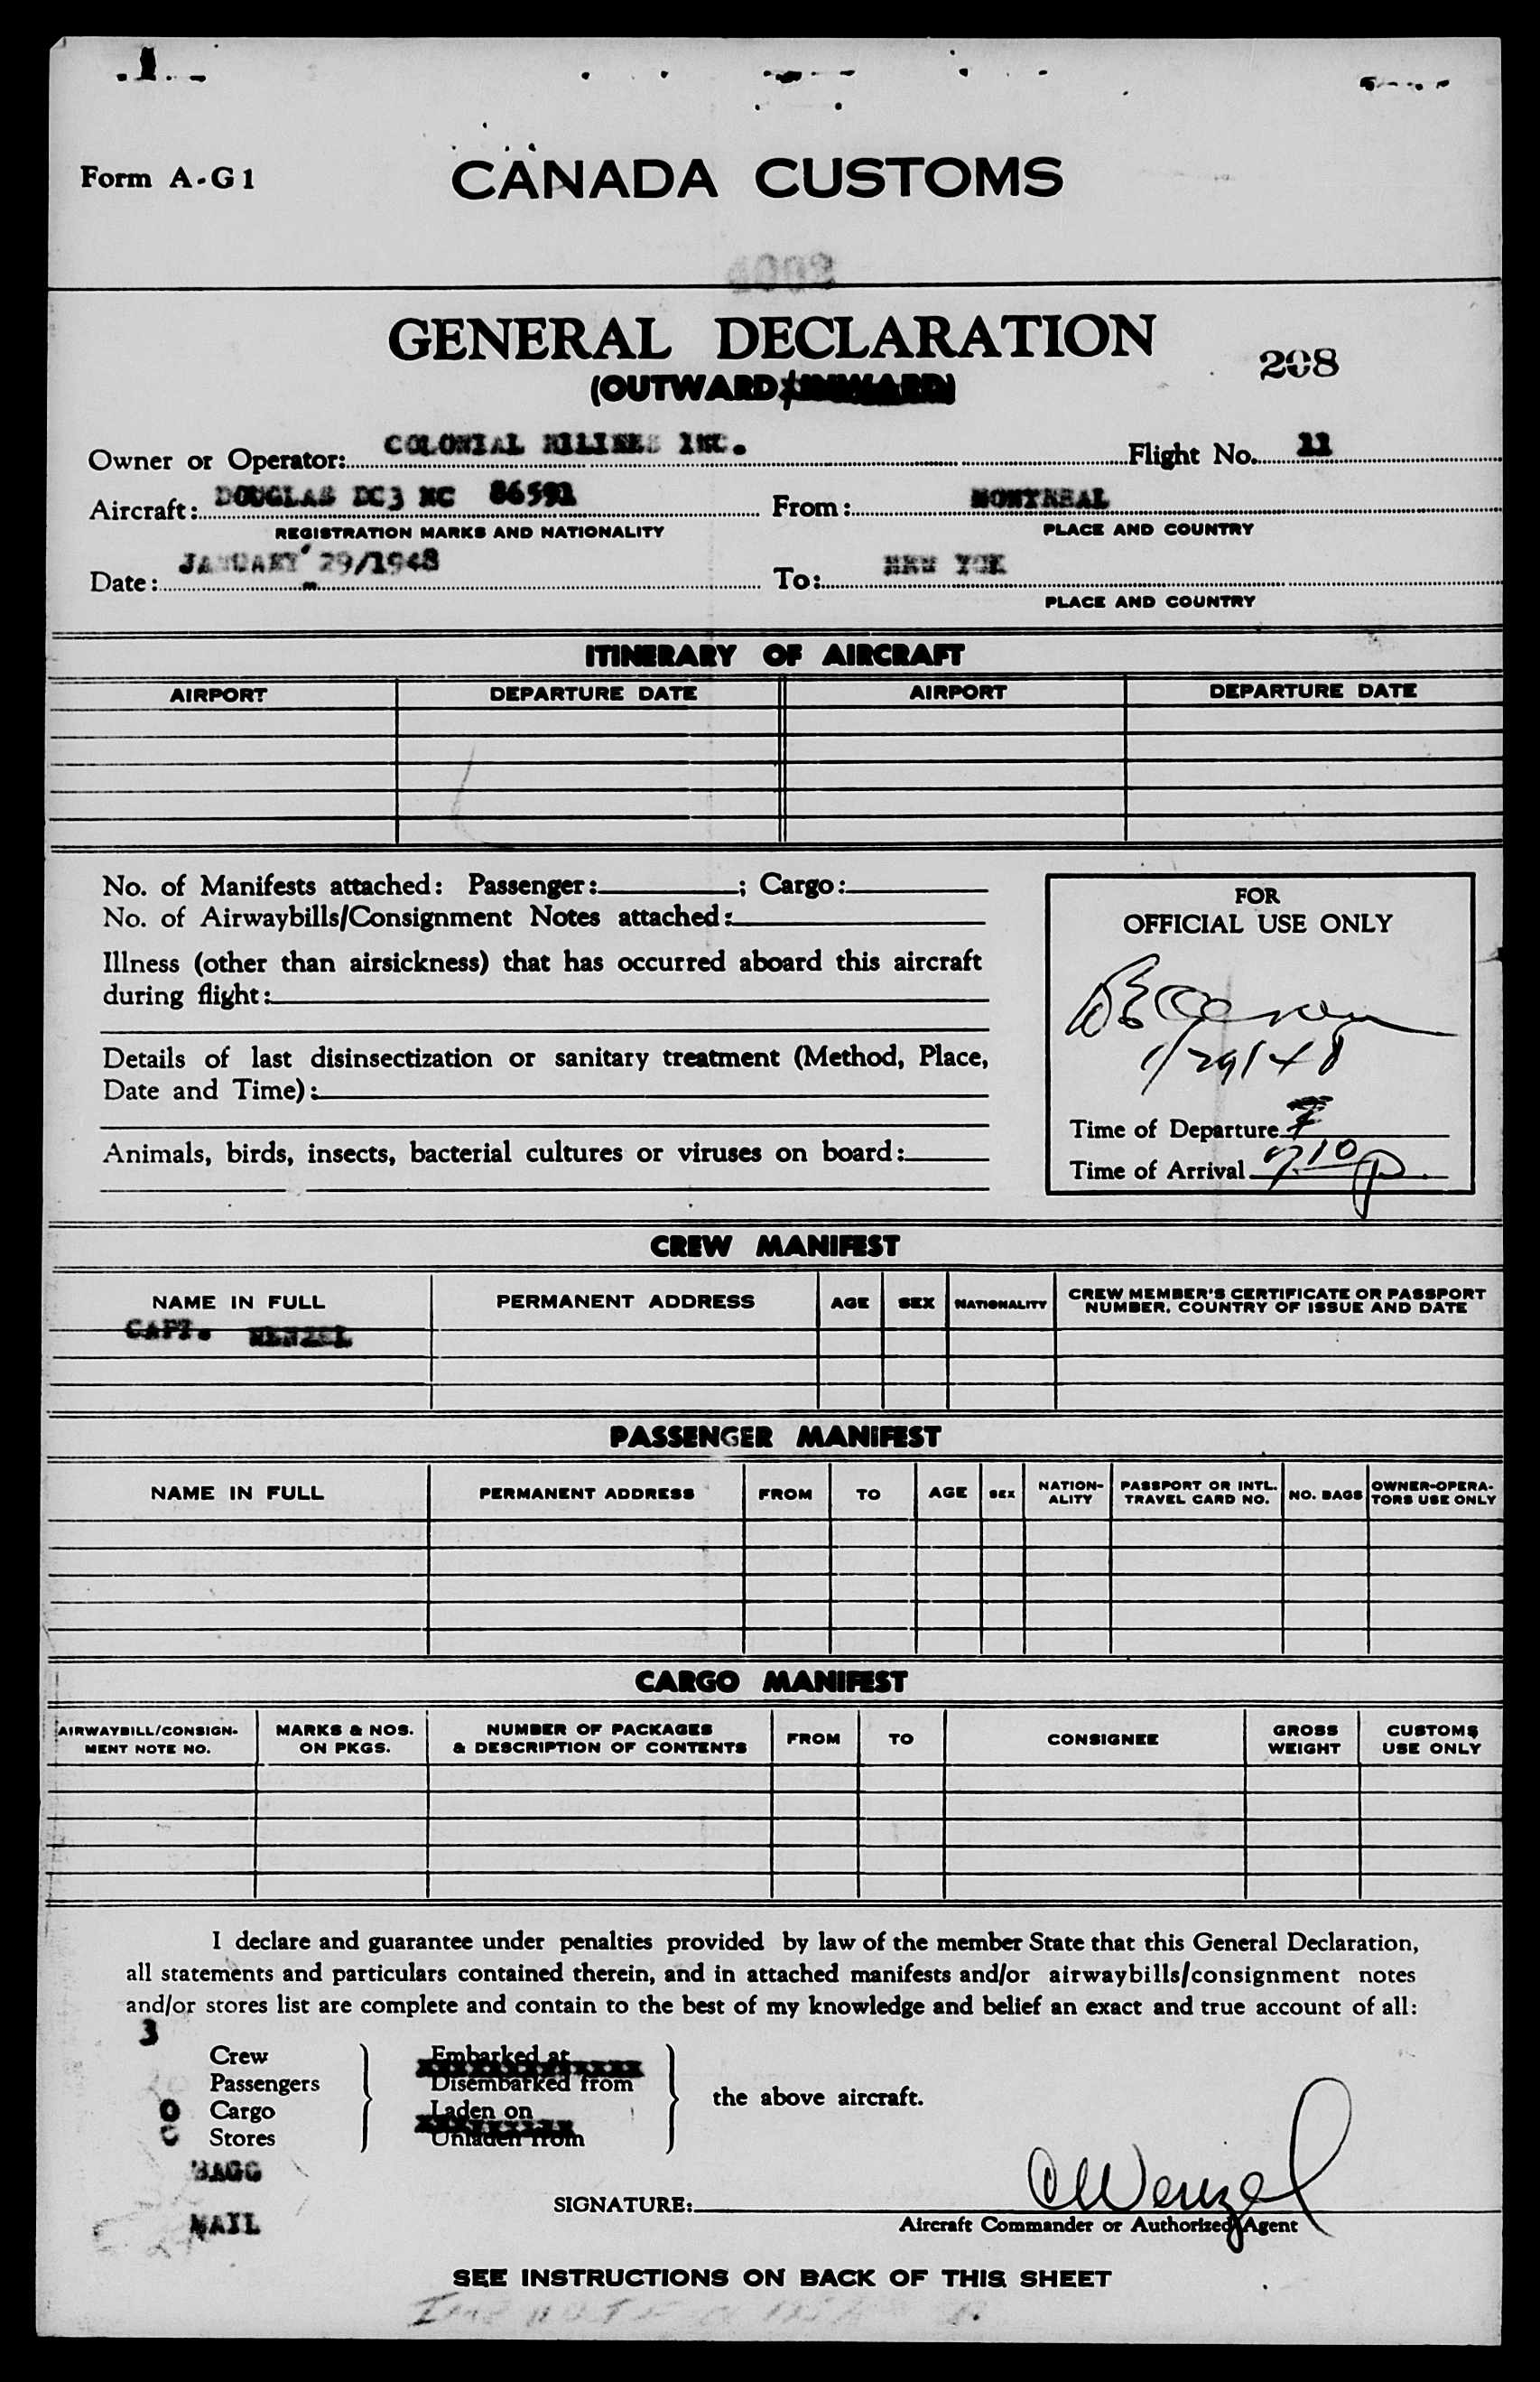 Form A-G1
CANADA CUSTOMS
GENERAL DECLARATION
208
(OUTWARD/INWARD)
Owner or Operator: COLONIAL AILINES INC. Flight No. 11
Aircraft: DOUGLAS DC3 NC 86591 From: MONTREAL
REGISTRATION MARKS AND NATIONALITY PLACE AND COUNTRY
Date: JANUARY 29/1948 To: NEW YOK
PLACE AND COUNTRY
ITINERARY OF AIRCRAFT
AIRPORT DEPARTURE DATE AIRPORT DEPARTURE DATE
No. of Manifests attached: Passenger: ; Cargo:
No. of Airwaybills/Consignment Notes attached:
Illness (other than airsickness) that has occurred aboard this aircraft
during flight:
Details of last disinsectization or sanitary treatment (Method, Place,
Date and Time):
Animals, birds, insects, bacterial cultures or viruses on board:
FOR
OFFICIAL USE ONLY
1/29/48
Time of Departure 7
Time of Arrival 710p
CREW MANIFEST
NAME IN FULL PERMANENT ADDRESS AGE SEX NATIONALITY CREW MEMBER'S CERTIFICATE OR PASSPORT
NUMBER, COUNTRY OF ISSUE AND DATE
CAPT. WENZEL
PASSENGER MANIFEST
NAME IN FULL PERMANENT ADDRESS FROM TO AGE SEX NATION-
ALITY PASSPORT OR INTL.
TRAVEL CARD NO. NO. BAGS OWNER-OPERA-
TORS USE ONLY
CARGO MANIFEST
AIRWAYBILL/CONSIGN-
MENT NOTE NO. MARKS & NOS.
ON PKGS. NUMBER OF PACKAGES
& DESCRIPTION OF CONTENTS FROM TO CONSIGNEE GROSS
WEIGHT CUSTOMS
USE ONLY
I declare and guarantee under penalties provided by law of the member State that this General Declaration,
all statements and particulars contained therein, and in attached manifests and/or airwaybills/consignment notes
and/or stores list are complete and contain to the best of my knowledge and belief an exact and true account of all:
3
Crew Embarked at
Passengers Disembarked from
the above aircraft.
0 Cargo Laden on
Stores Unladen from
BAGG
MAIL
SIGNATURE: CWenzel
Aircraft Commander or Authorized Agent
SEE INSTRUCTIONS ON BACK OF THIS SHEET